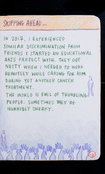 SKIPPING AHEAD...
IN 2017, I EXPERIENCED
SIMILAR DISCRIMINATION FROM
FRIENDS I STARTED AN EDUCATIONAL
PROJECT WITH. THEY GOT
NASTY WHEN I NEEDED TO WORK
REMOTELY WHILE CARING FOR MOM
DURING YET ANOTHER CANCER
TREATMENT.
THE WORLD IS FULL OF TROUBLING
PEOPLE. SOMETIMES THEY'RE
HORRIBLY GHASTLY.